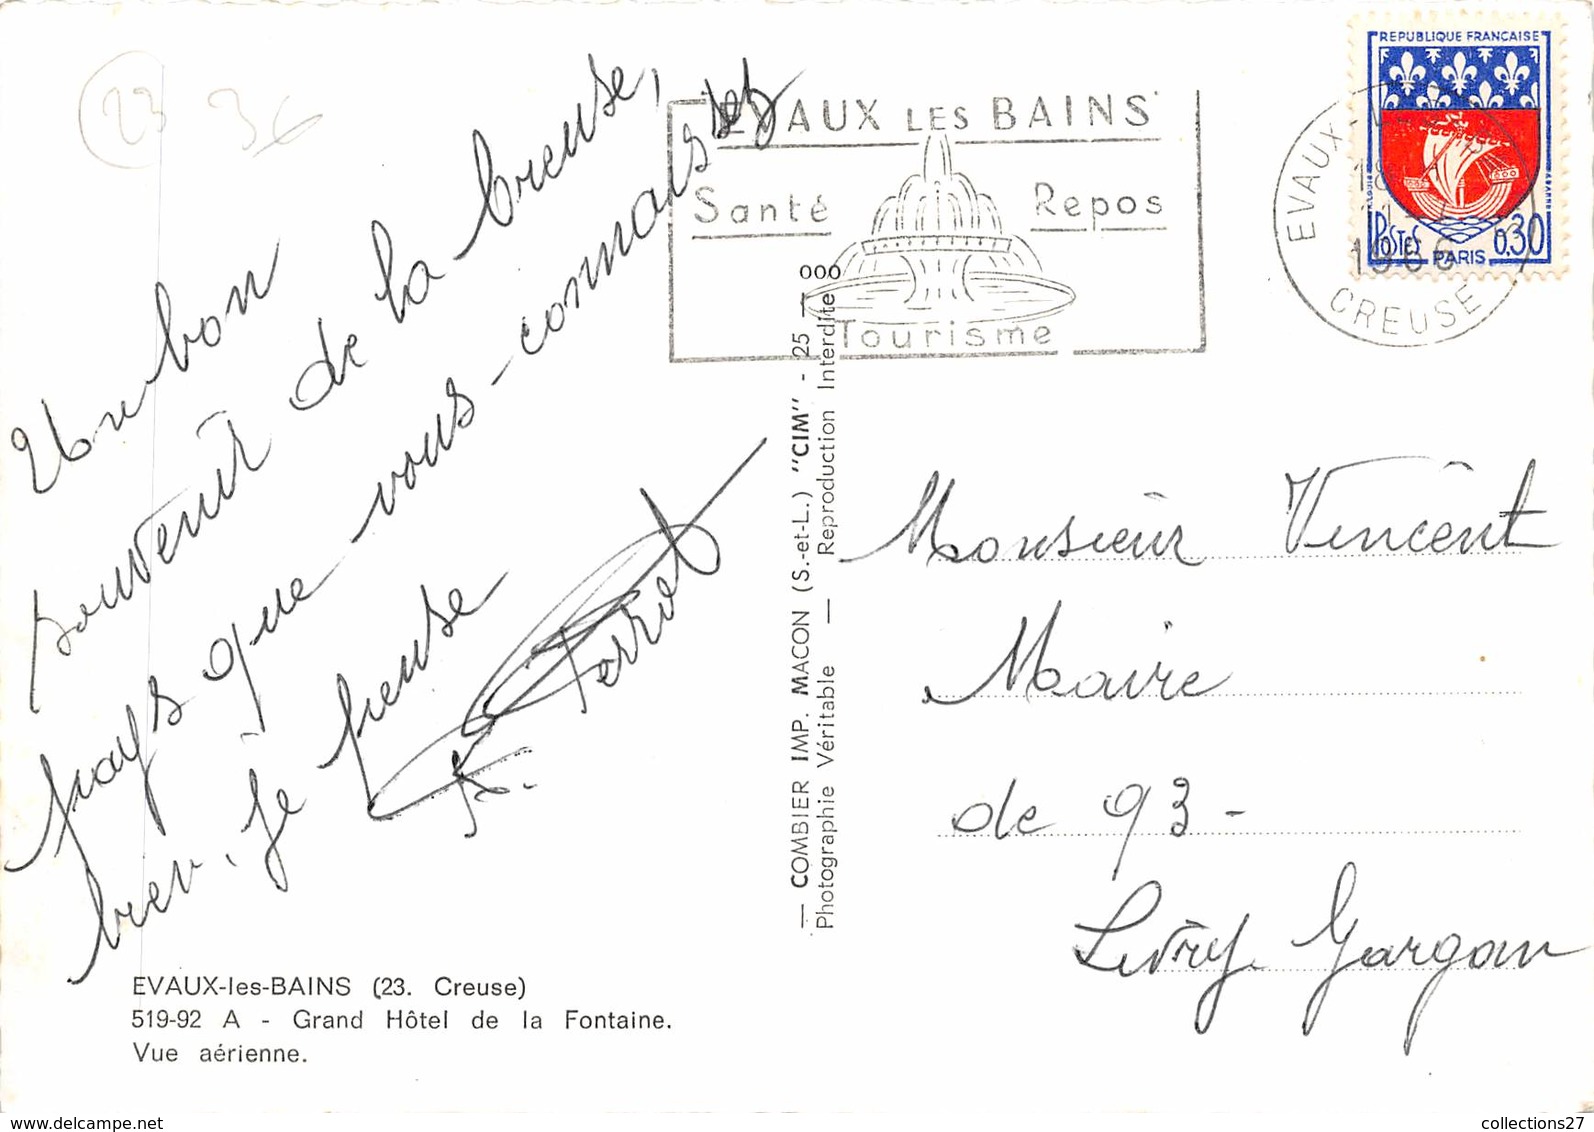 23 36
Un bon
souvenir de la Creuse,
pays que vous-connaissez
bien, je pense
A. Perrot
EVAUX-les-BAINS (23. Creuse)
519-92 A - Grand Hôtel de la Fontaine.
Vue aérienne.
— COMBIER IMP. MACON (S.-et-L.) "CIM" - 25 — 000
Photographie Véritable — Reproduction Interdite
EVAUX LES BAINS
Santé Repos
Tourisme
EVAUX-
18
1966
CREUSE
REPUBLIQUE FRANCAISE
POSTES PARIS 0,30
Monsieur Vincent
Maire
de 93 -
Livry Gargan
delcampe.net
collections27